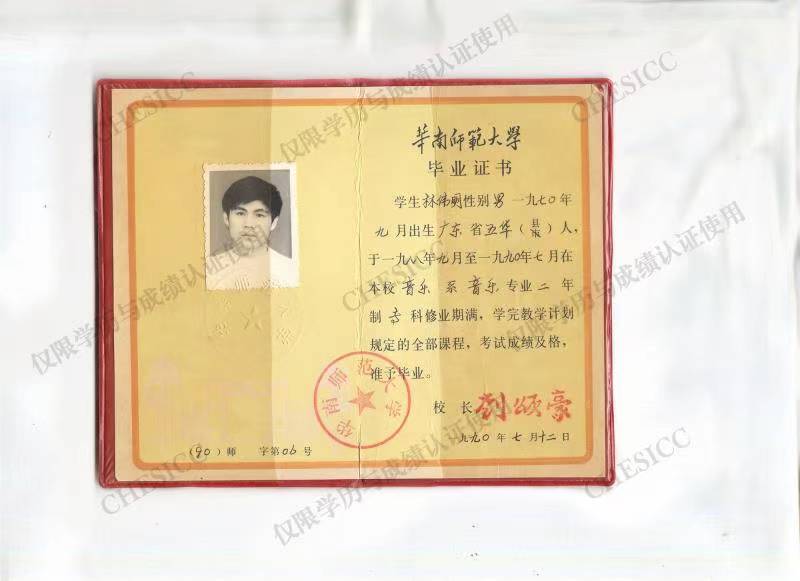 華南师範大學
毕业证书
学生林伟 性别男 一九七〇年
九月出生广东省五华（县）人，
于一九八八年九月至一九九〇年七月在
本校音乐系音乐专业二年
制专科修业期满，学完教学计划
规定的全部课程，考试成绩及格，
准予毕业。
校长 刘颂豪
一九九〇年七月十二日
（90）师 字第06号
华南师范大学
仅限学历与成绩认证使用
CHESICC
仅限学历与成绩认证使用
CHESICC
仅限学历与成绩认证使用
CHESICC
仅限学历与成绩认证使用
CHESICC
仅限学历与成绩认证使用
CHESICC